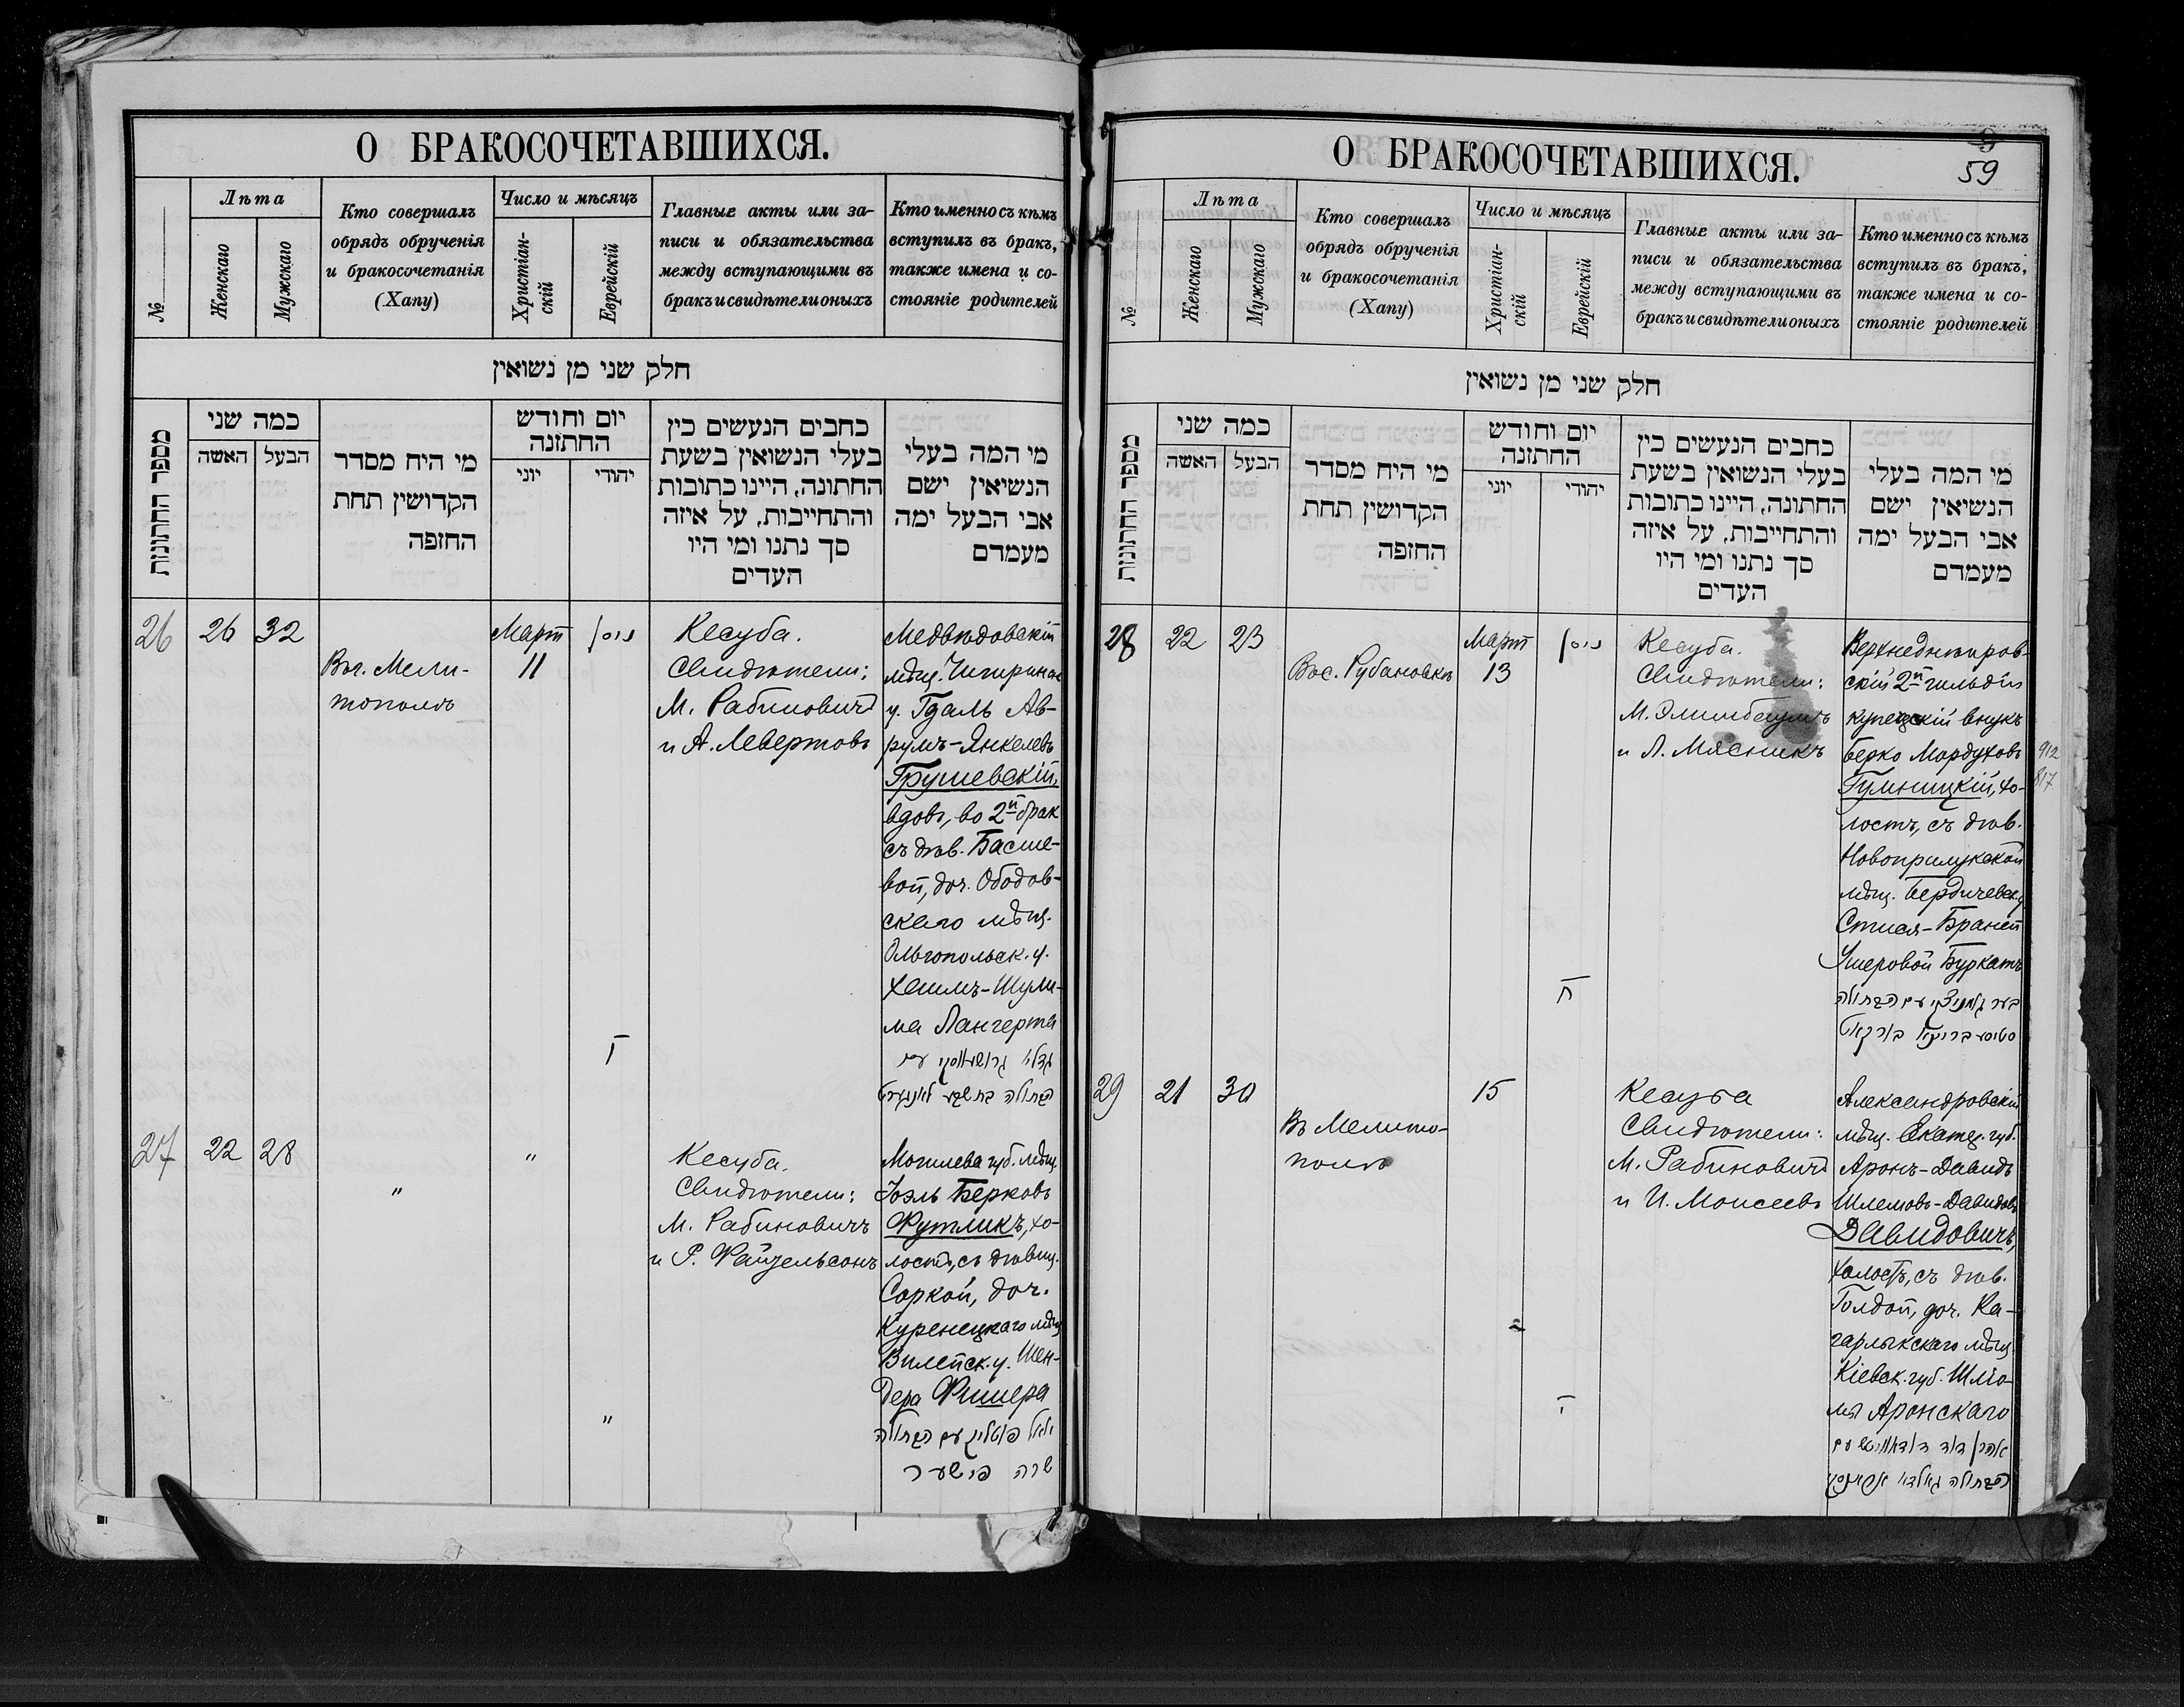 О БРАКОСОЧЕТАВШИХСЯ.
№
Лѣта
Женскаго
Мужскаго
Кто совершалъ
обрядъ обрученія
и бракосочетанія
(Хапу)
Число и мѣсяцъ
Христіан-
скій
Еврейскій
Главные акты или за-
писи и обязательства
между вступающими въ
бракъ и свидѣтели оныхъ
Кто именно съ кѣмъ
вступилъ въ бракъ,
также имена и со-
стояніе родителей
חלק שני מן נשואין
מספר החתונות
כמה שני
האשה
הבעל
מי היח מסדר
הקדושין תחת
החזפה
יום וחודש
החתזנה
יוני
יהודי
כחבים הנעשים כין
בעלי הנשואין בשעת
החתונה, היינו כתובות
והתחייבות, על איזה
סך נתנו ומי היו
העדים
מי המה בעלי
הנשיאין ישם
אבי הבעל ימה
מעמדם
26
26
32
Въ г. Мели-
тополѣ
Март
11
ניסן
Кесуба.
Свидѣтели:
М. Рабиновичъ
и А. Левертовъ
Медвѣдовскій
мѣщ. Чигринск
у. Гдаль Ав-
румъ-Янкелевъ
Грушевскій,
вдовъ, во 2й брак
съ дѣв. Басше-
вой, доч. Ободов-
скаго мѣщ.
Ольгопольск. у.
Хаимъ-Шули-
ма Лангерта
ז
גדלי' גרושעווסקי עם
הבתולה בת שבע לאנגערט
27
22
28
"
"
"
Кесуба.
Свидѣтели:
М. Рабиновичъ
и Р. Файгельсонъ
Могилева губ. мѣщ.
Іоэль Берковъ
Футликъ, хо-
лостъ, съ дѣвиц.
Соркой, доч.
Куренецкаго мѣщ
Вилейск. у. Шен-
дера Фишера
יואל פוטליק עם הבתולה
שרה פישער
О БРАКОСОЧЕТАВШИХСЯ.
59
№
Лѣта
Женскаго
Мужскаго
Кто совершалъ
обрядъ обрученія
и бракосочетанія
(Хапу)
Число и мѣсяцъ
Христіан-
скій
Еврейскій
Главные акты или за-
писи и обязательства
между вступающими въ
бракъ и свидѣтели оныхъ
Кто именно съ кѣмъ
вступилъ въ бракъ,
также имена и со-
стояніе родителей
חלק שני מן נשואין
מספר החתונות
כמה שני
האשה
הבעל
מי היח מסדר
הקדושין תחת
החזפה
יום וחודש
החתזנה
יוני
יהודי
כחבים הנעשים כין
בעלי הנשואין בשעת
החתונה, היינו כתובות
והתחייבות, על איזה
סך נתנו ומי היו
העדים
מי המה בעלי
הנשיאין ישם
אבי הבעל ימה
מעמדם
28
22
23
Въ с. Рубановкѣ
Март
13
ניסן
Кесуба.
Свидѣтели:
и Л. Мясникъ
Верхнеднѣпров-
скій 2й гильдіи
купеческій внукъ
Берко Мордуховъ
Гульницкій, хо-
лостъ, съ дѣв.
Новоприлукской
мѣщ. Бердичевск. у
Стися-Браней
Ушеровой Буркатъ
ט
912
817
29
21
30
Въ Мелито-
полѣ
15
Кесуба
Свидѣтели:
М. Рабиновичъ
и И. Моисеевъ
Александровскій
мѣщ. Екатер. губ.
Аронъ-Давидъ
Шлемовъ-Давидовъ
Давидовичъ,
холостъ, съ дѣв.
Голдой, доч. Ка-
гарлыкскаго мѣщ
Кіевск. губ. Шлю-
мы Аронскаго